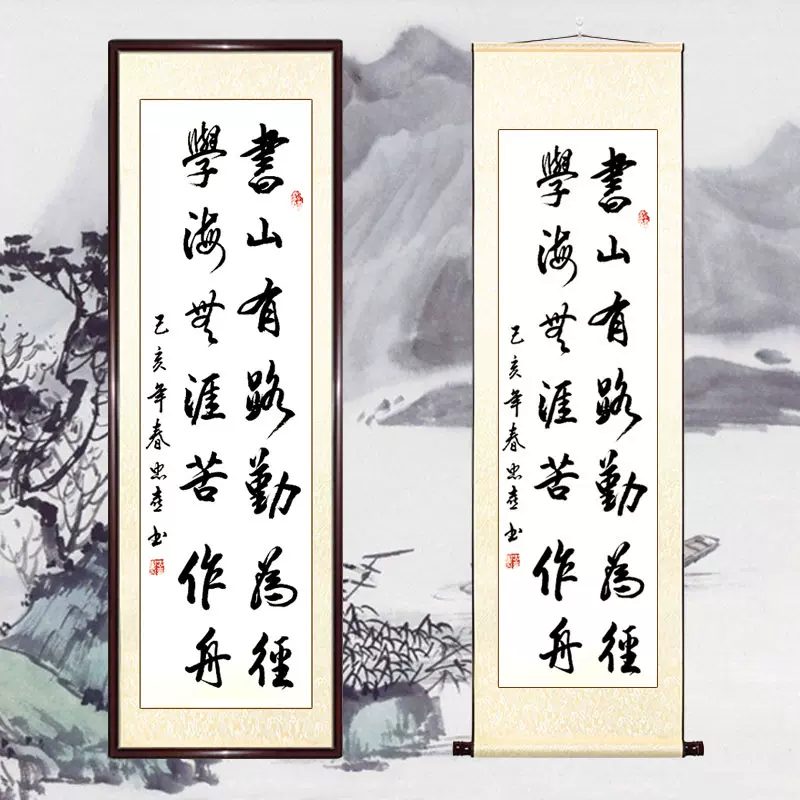 書山有路勤為徑
學海無涯苦作舟
己亥年春書
書山有路勤為徑
學海無涯苦作舟
己亥年春書